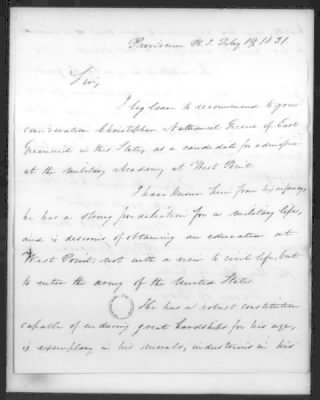 Providence R.I. Feby 19, 1831.
Sir,
I beg leave to recommend to your
consideration Christopher Nathanael Greene of East
Greenwich in this State, as a candidate for admission
at the military Academy at West Point.
I have known him from his infancy,
he has a strong predilection for a military life,
and is desirous of obtaining an education at
West Point, not with a view to civil life, but
to enter the army of the United States.
He has a robust constitution
capable of enduring great hardships for his age,
is exemplary in his morals, industrious in his